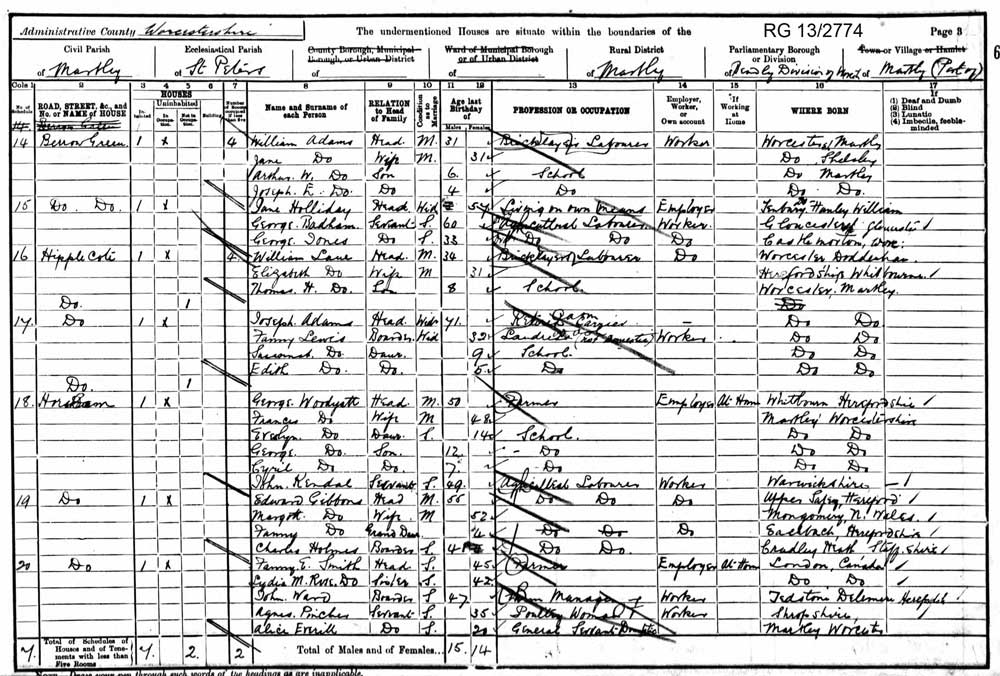 Administrative County Worcestershire The undermentioned Houses are situate within the boundaries of the RG 13/2774 Page 3
Civil Parish Ecclesiastical Parish County Borough, Municipal Borough, or Urban District Ward of Municipal Borough or of Urban District Rural District Parliamentary Borough or Division Town or Village or Hamlet 6
of Martley of St Peters of of of Martley of Division of Worc. of Martley (Part of)
Cols 1 2 3 4 5 6 7 8 9 10 11 12 13 14 15 16 17
No. of Schedule ROAD, STREET, &c., and No. or NAME of HOUSE HOUSES Inhabited Uninhabited In Occupation. Not in Occupation. Building Number of Rooms occupied if less than five Name and Surname of each Person RELATION to Head of Family Condition as to Marriage Age last Birthday of Males Females PROFESSION OR OCCUPATION Employer, Worker, or Own account If Working at Home WHERE BORN If (1) Deaf and Dumb (2) Blind (3) Lunatic (4) Imbecile, feeble-minded
14 Berrow Green 1 x 4 William Adams Head M. 31 Bricklayers Labourer Worker Worcester Martley
Jane Do Wife M. 31 Do Shelsley
Arthur W. Do Son 6 School Do Martley
Joseph E. Do. Do 4 Do Do. Do.
15 Do. Do. 1 x Jane Holliday Head Wid 54 Living on own means Employer Tenbury Hanley William
George Badham Servant S. 60 Agricultural Labourer Worker Gloucester Gloucester
George Jones Do S. 33 Do Do Do Castlemorton, Worc:
16 Hipplecote 1 x 4 William Lane Head M. 34 Bricklayers Labourer Do Worcester Dodderhan
Elizabeth Do Wife M 31 Herefordship Whitbourne
Thomas H. Do. Son 8 School. Worcester, Martley.
Do. 1 Do
17. Do 1 x Joseph Adams Head Widr 71. Retired Farm Carrier – Do Do.
Fanny Lewis Boarder Wid 39 Laundress (not domestic) Worker Do Do
Do. Daur. 9 School. Do Do
Edith Do. Do. 5 Do Do Do
Do. 1
18. Horsham 1 x George Woodyatt Head M. 50 Farmer Employer At Home Whitbourn Herefordshire
Frances Do Wife M 48 Martley Worcestershire
Evelyn Do Daur S. 14 School. Do Do
George Do. Son. 12 Do Do Do
Cyril Do Do. 7 Do Do Do
John Kendal Servant S. 49. Agricultural Labourer Worker Warwickshire
19 Do 1 x Edward Gibbons Head M. 56 Do Do Do Upper Sapey Hereford
Margtt. Do Wife M 52 Montgomery, N. Wales.
Fanny Do Grand Daur 4 Do Do Do Herefordshire
Charles Holmes Boarder S. 41 Do Do. Cradley Heath Staff. shire
20 Do 1 x Fanny E. Smith Head S. 45 Farmer Employer At Home London, Canada
Lydia M. Ross. Do Sister S. 42 Do Do
John Ward Boarder S. 47 Farm Manager Worker Tedstone Delamere Herefdsh
Agnes Pinches Servant S. 35 Poultry Woman Worker Shropshire
Alice Everill Do S. 20 General Servant Domestic Martley Worcester
7. Total of Schedules of Houses and of Tenements with less than Five Rooms 7. 2. 2 Total of Males and of Females... 15. 14
NOTE—Draw your pen through such words of the headings as are inapplicable.